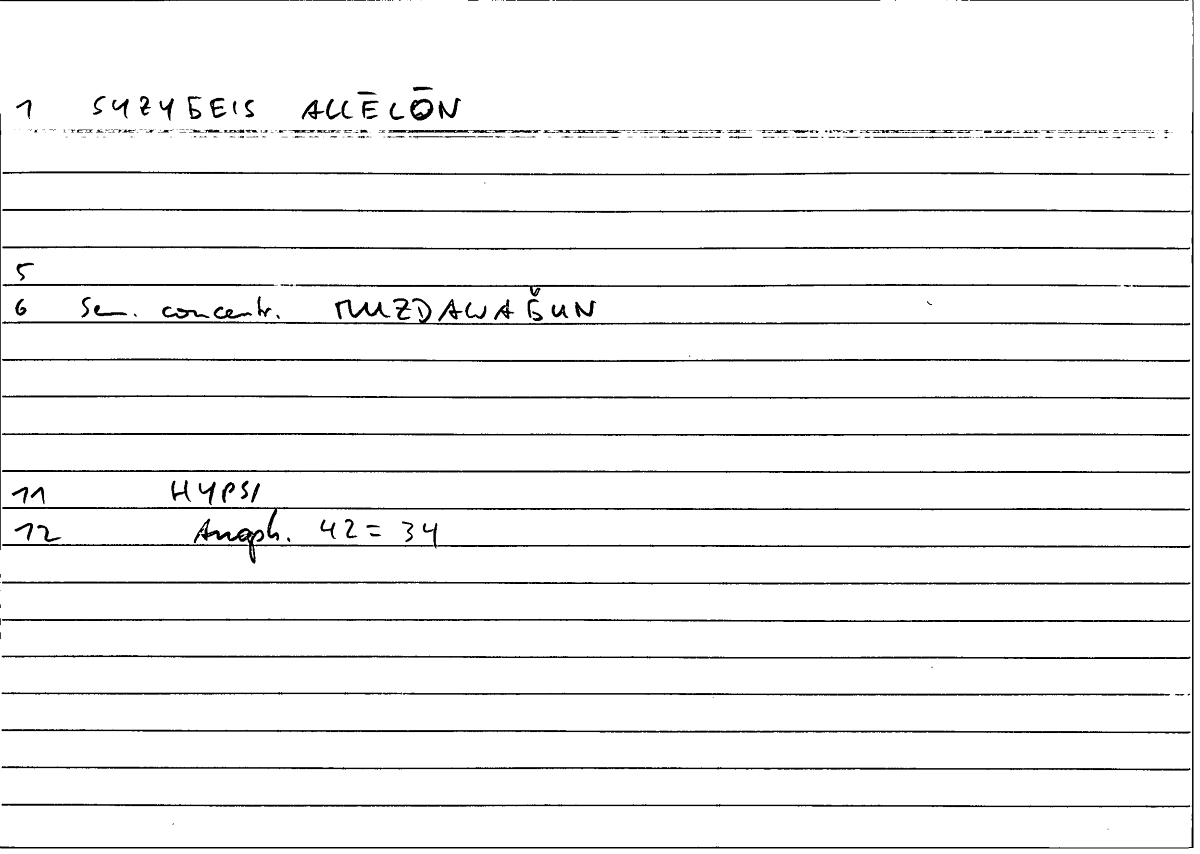 1 SYZYGEIS ALLĒLŌN
5
6 Sem. concentr. MUZDAWAǦUN
11 HYPSI
12 Anaph. 42 = 34